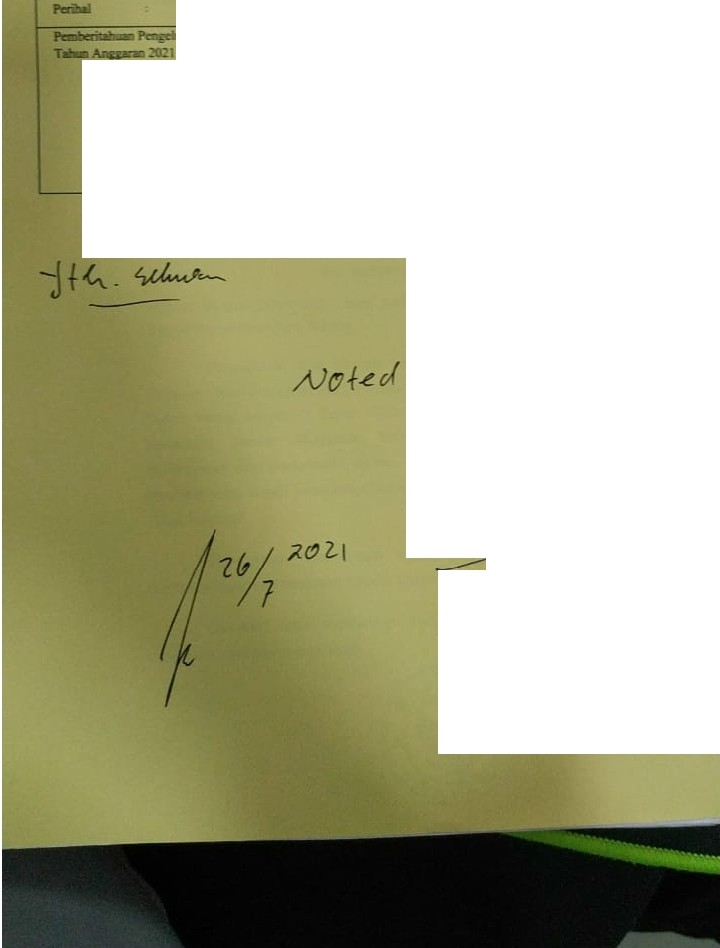 Perihal :
Pemberitahuan
Tahun Anggaran 2021
Yth.
Noted
26/7 2021